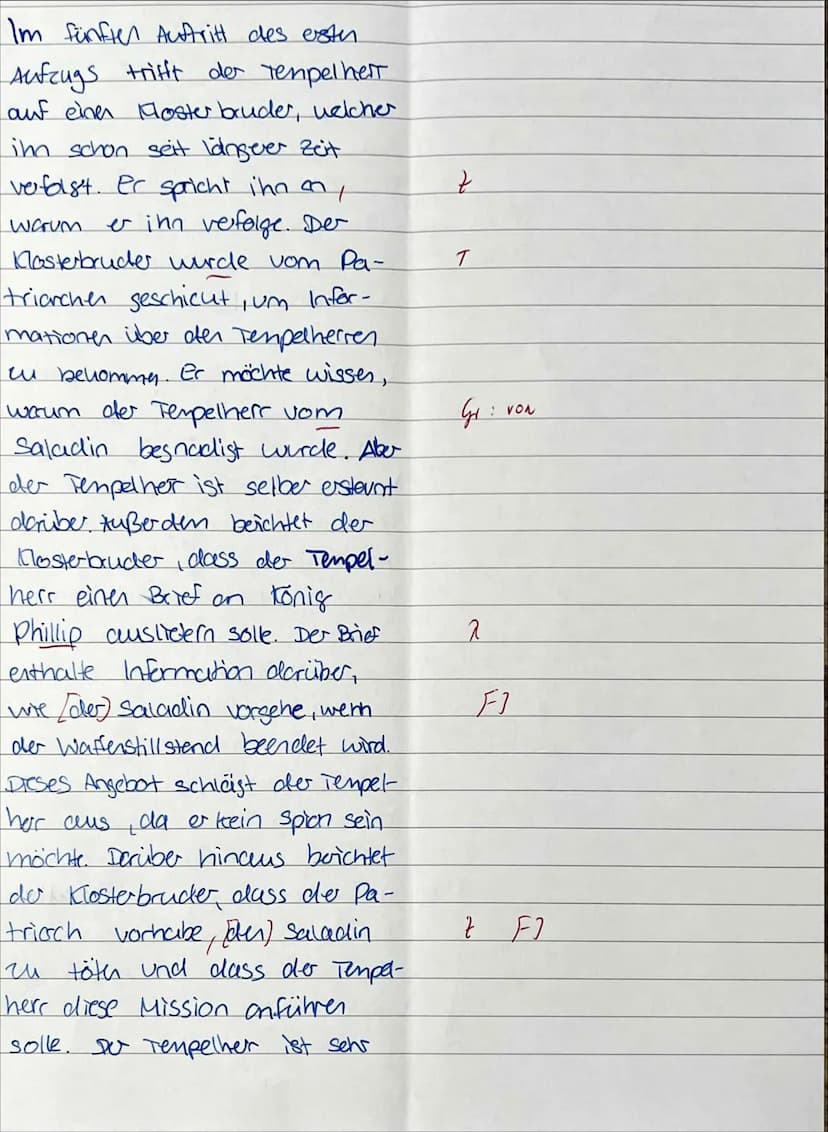 Im fünften Auftritt des ersten
Aufzugs trifft der Tempelherr
auf einen Klosterbruder, welcher
ihn schon seit längerer Zeit
verfolgt. Er spricht ihn an, z
warum er ihn verfolge. Der
Klosterbruder wurde vom Pa- T
triarchen geschickt, um Infor-
mationen über den Tempelherren
zu bekommen. Er möchte wissen,
warum der Tempelherr vom Gr: von
Saladin begnadigt wurde. Aber
der Tempelherr ist selber erstaunt
darüber. Außerdem berichtet der
Klosterbruder, dass der Tempel-
herr einen Brief an König
Phillip ausliefern solle. Der Brief
enthalte Information darüber,
wie [der] Saladin vorgehe, wenn F]
der Waffenstillstand beendet wird.
Dieses Angebot schlägt der Tempel-
herr aus, da er kein Spion sein
möchte. Darüber hinaus berichtet
der Klosterbruder, dass der Pa-
triach vorhabe, [den] Saladin z F]
zu töten und dass der Tempel-
herr diese Mission anführen
solle. Der Tempelherr ist sehr